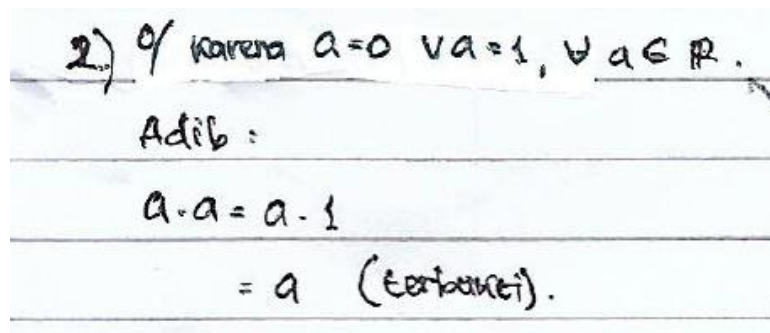 2.) o/ karena a=0 ∨ a=1, ∀ a ∈ ℝ.
Adib :
a.a = a.1
= a (terbukti).